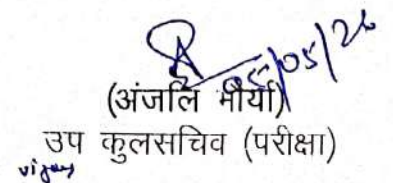 05/05/26
(अंजलि मौर्या)
उप कुलसचिव (परीक्षा)